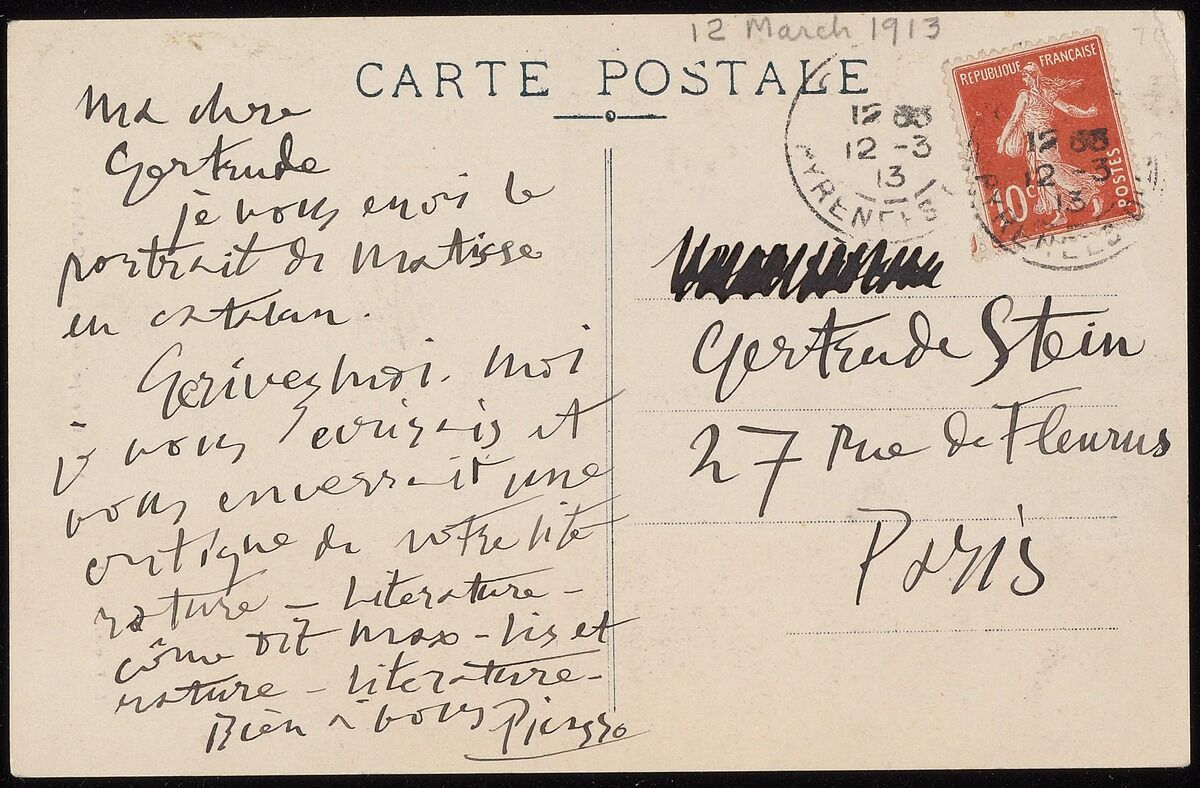 12 March 1913
CARTE POSTALE
REPUBLIQUE FRANÇAISE
POSTES
10c
12-3
13
PYRENEES
12-3
13
ma chere
Gertrude
je vous envois le
portrait de Matisse
en catalan.
Ecrivez moi. moi
je vous ecrirais et
vous enverrait une
critique de votre lite
rature – literature –
côme dit Max – lis et
rature – literature –
Bien a vous Picasso
Gertrude Stein
27 rue de Fleurus
Paris